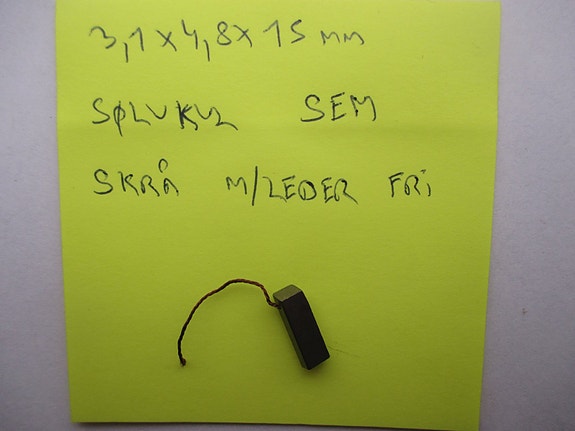 3,1 x 4,8 x 15 mm
SØLVKUL SEM
SKRÅ M/LEDER FRI